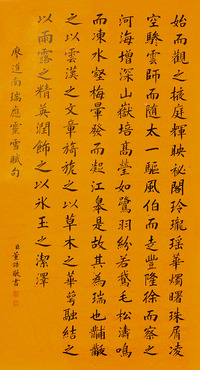 始而觀之掖庭輝映秘閣玲瓏瑤華燭曙珠屑凌
空驂雲師而隨太一驅風伯而走豐隆徐而察之
河海增深山嶽培高瑩如鷺羽紛若鵝毛松濤鳴
而凍水壑梅暈發而起江皋是故其為瑞也黼黻
之以雲漢之文章旖旎之以草木之華萼融結之
以雨露之精英潤飾之以冰玉之潔澤
廖道南瑞應靈雪賦句
董敬書